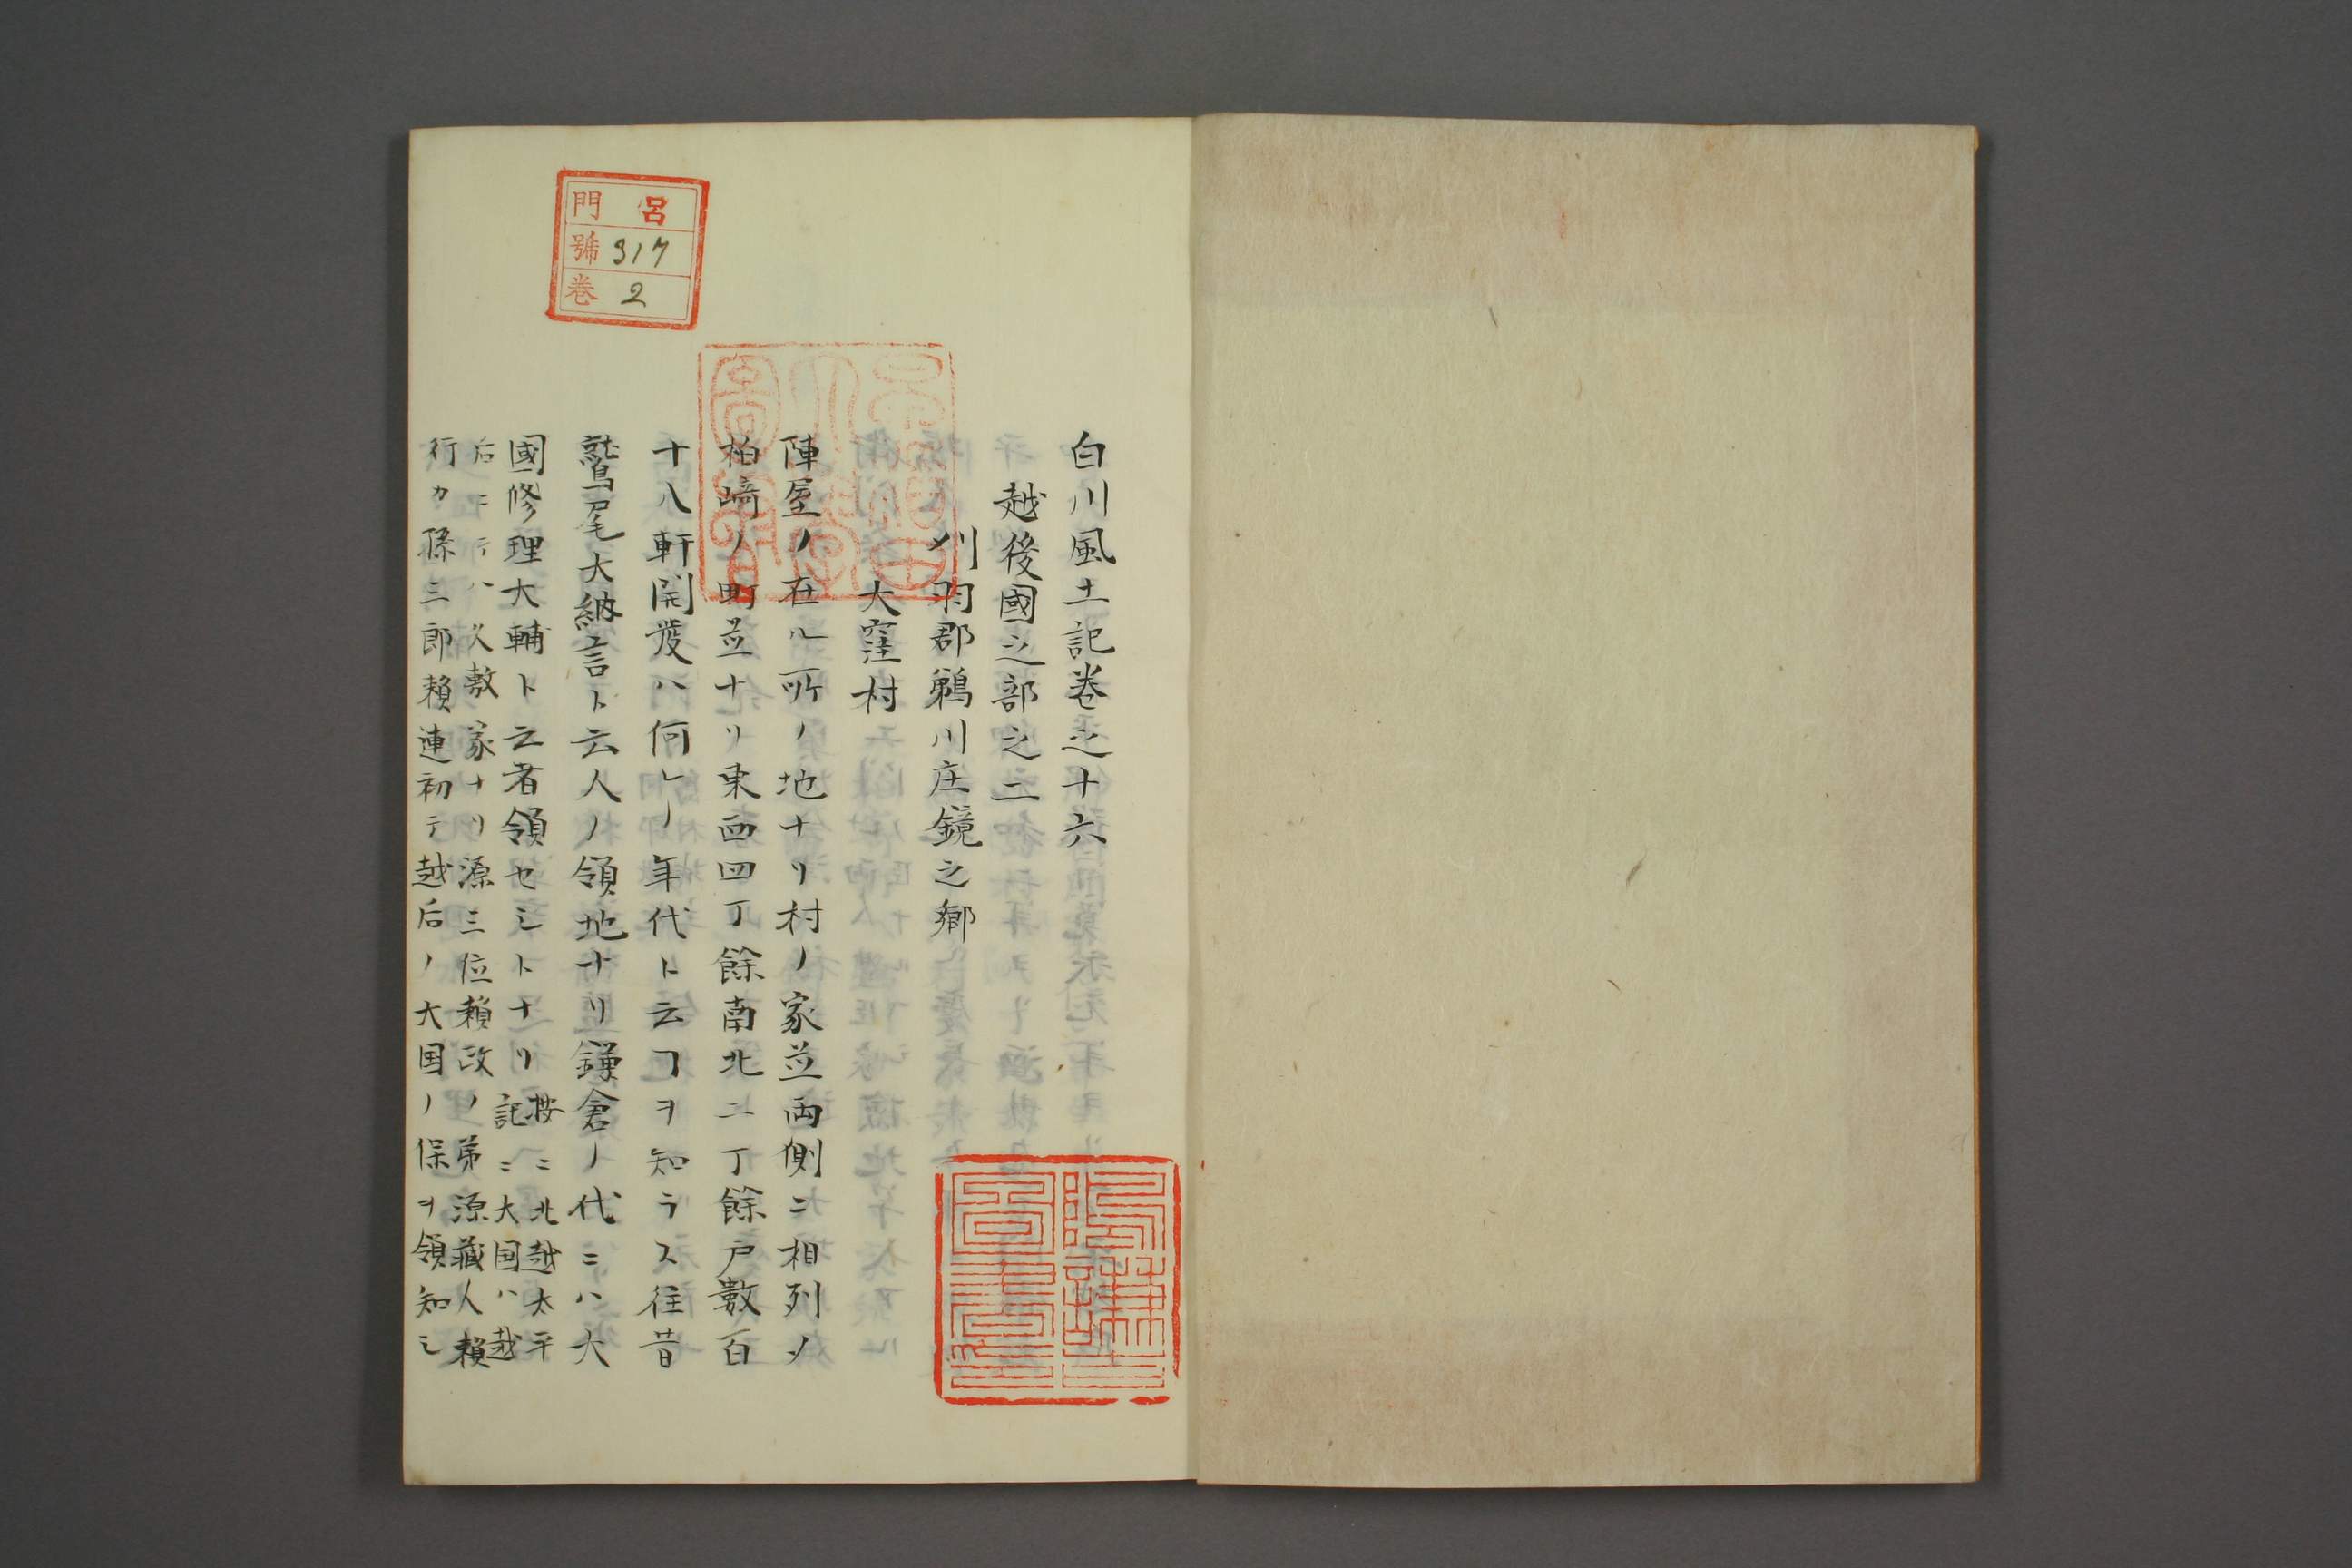 白川風土記巻之十六
越後國之部之二
刈羽郡鵜川庄鏡之郷
大窪村
陣屋ノ在ル所ノ地ナリ村ノ家並両側ニ相列ノ
柏﨑ノ町並ナリ東西四丁餘南北二丁餘戸數百
十八軒開發ハ何レノ年代ト云ヿヲ知ラス往昔
鷲尾大納言ト云人ノ領地ナリ鎌倉ノ代ニハ大
國修理大輔ト云者領セシトナリ按ニ北越太平
記ニ大国ハ越
后ニテハ久敷家ナリ源三位頼政ノ弟源藏人頼
行カ孫三郎頼連初テ越后ノ大国ノ保ヲ領知シ
門 呂
號 317
巻 2